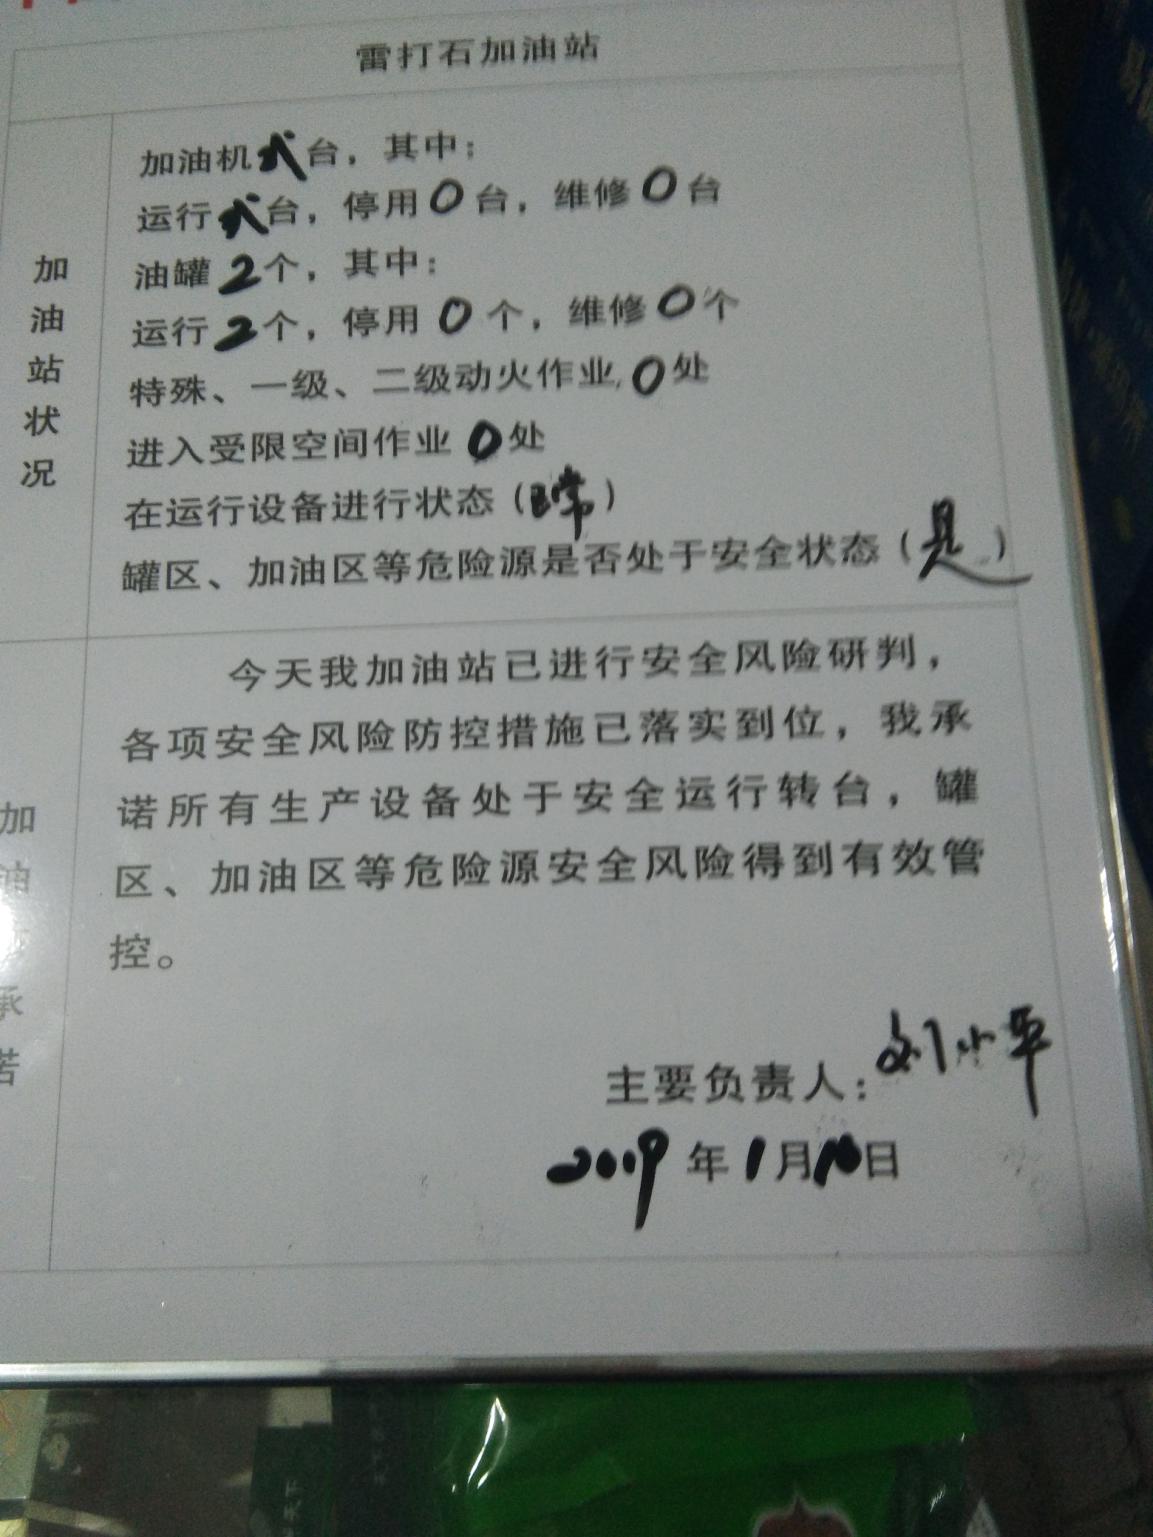 雷打石加油站
加油站状况
加油机弍台，其中：
运行弍台，停用0台，维修0台
油罐2个，其中：
运行2个，停用0个，维修0个
特殊、一级、二级动火作业，0处
进入受限空间作业0处
在运行设备进行状态（正常）
罐区、加油区等危险源是否处于安全状态（是）
加油站承诺
今天我加油站已进行安全风险研判，
各项安全风险防控措施已落实到位，我承
诺所有生产设备处于安全运行转台，罐
区、加油区等危险源安全风险得到有效管
控。
主要负责人：刘小平
2019年1月10日